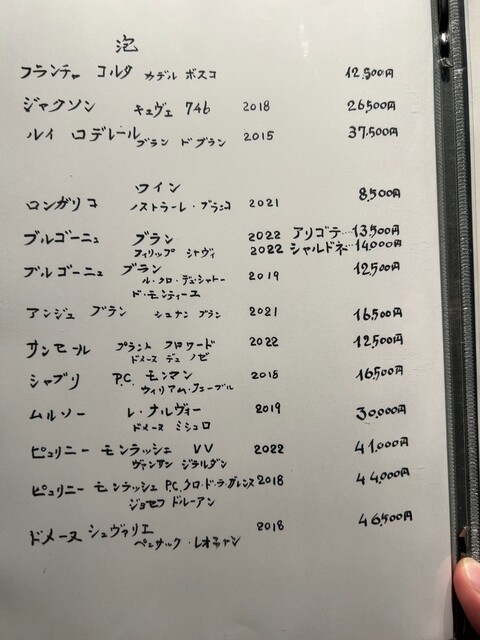 泡
フランチャ コルタ カデル ボスコ 12,500円
ジャクソン キュヴェ 746 2018 26,500円
ルイ ロデレール ブラン ド ブラン 2015 37,500円
ワイン
ロンガリコ ノストラーレ・ブランコ 2021 8,500円
ブルゴーニュ ブラン 2022 アリゴテ…13,500円
フィリップ シャヴィ 2022 シャルドネ…14,000円
ブルゴーニュ ブラン 2019 12,500円
ル・クロ・デュ・シャトー
ド・モンティーユ
アンジュ ブラン シュナン ブラン 2021 16,500円
サンセール プラント クロワード 2022 12,500円
ドメーヌ デュ ノゼ
シャブリ P.C. モンマン 2018 16,500円
ウィリアム・フェーブル
ムルソー レ・ナルヴォー 2019 30,000円
ドメーヌ ミシュロ
ピュリニー モンラッシェ VV 2022 41,000円
ヴァンサン ジラルダン
ピュリニー モンラッシェ P.C.クロ・ド・ラ・ガレンヌ 2018 44,000円
ジョセフ ドルーアン
ドメーヌ シュヴァリエ 2018 46,500円
ペサック・レオニャン